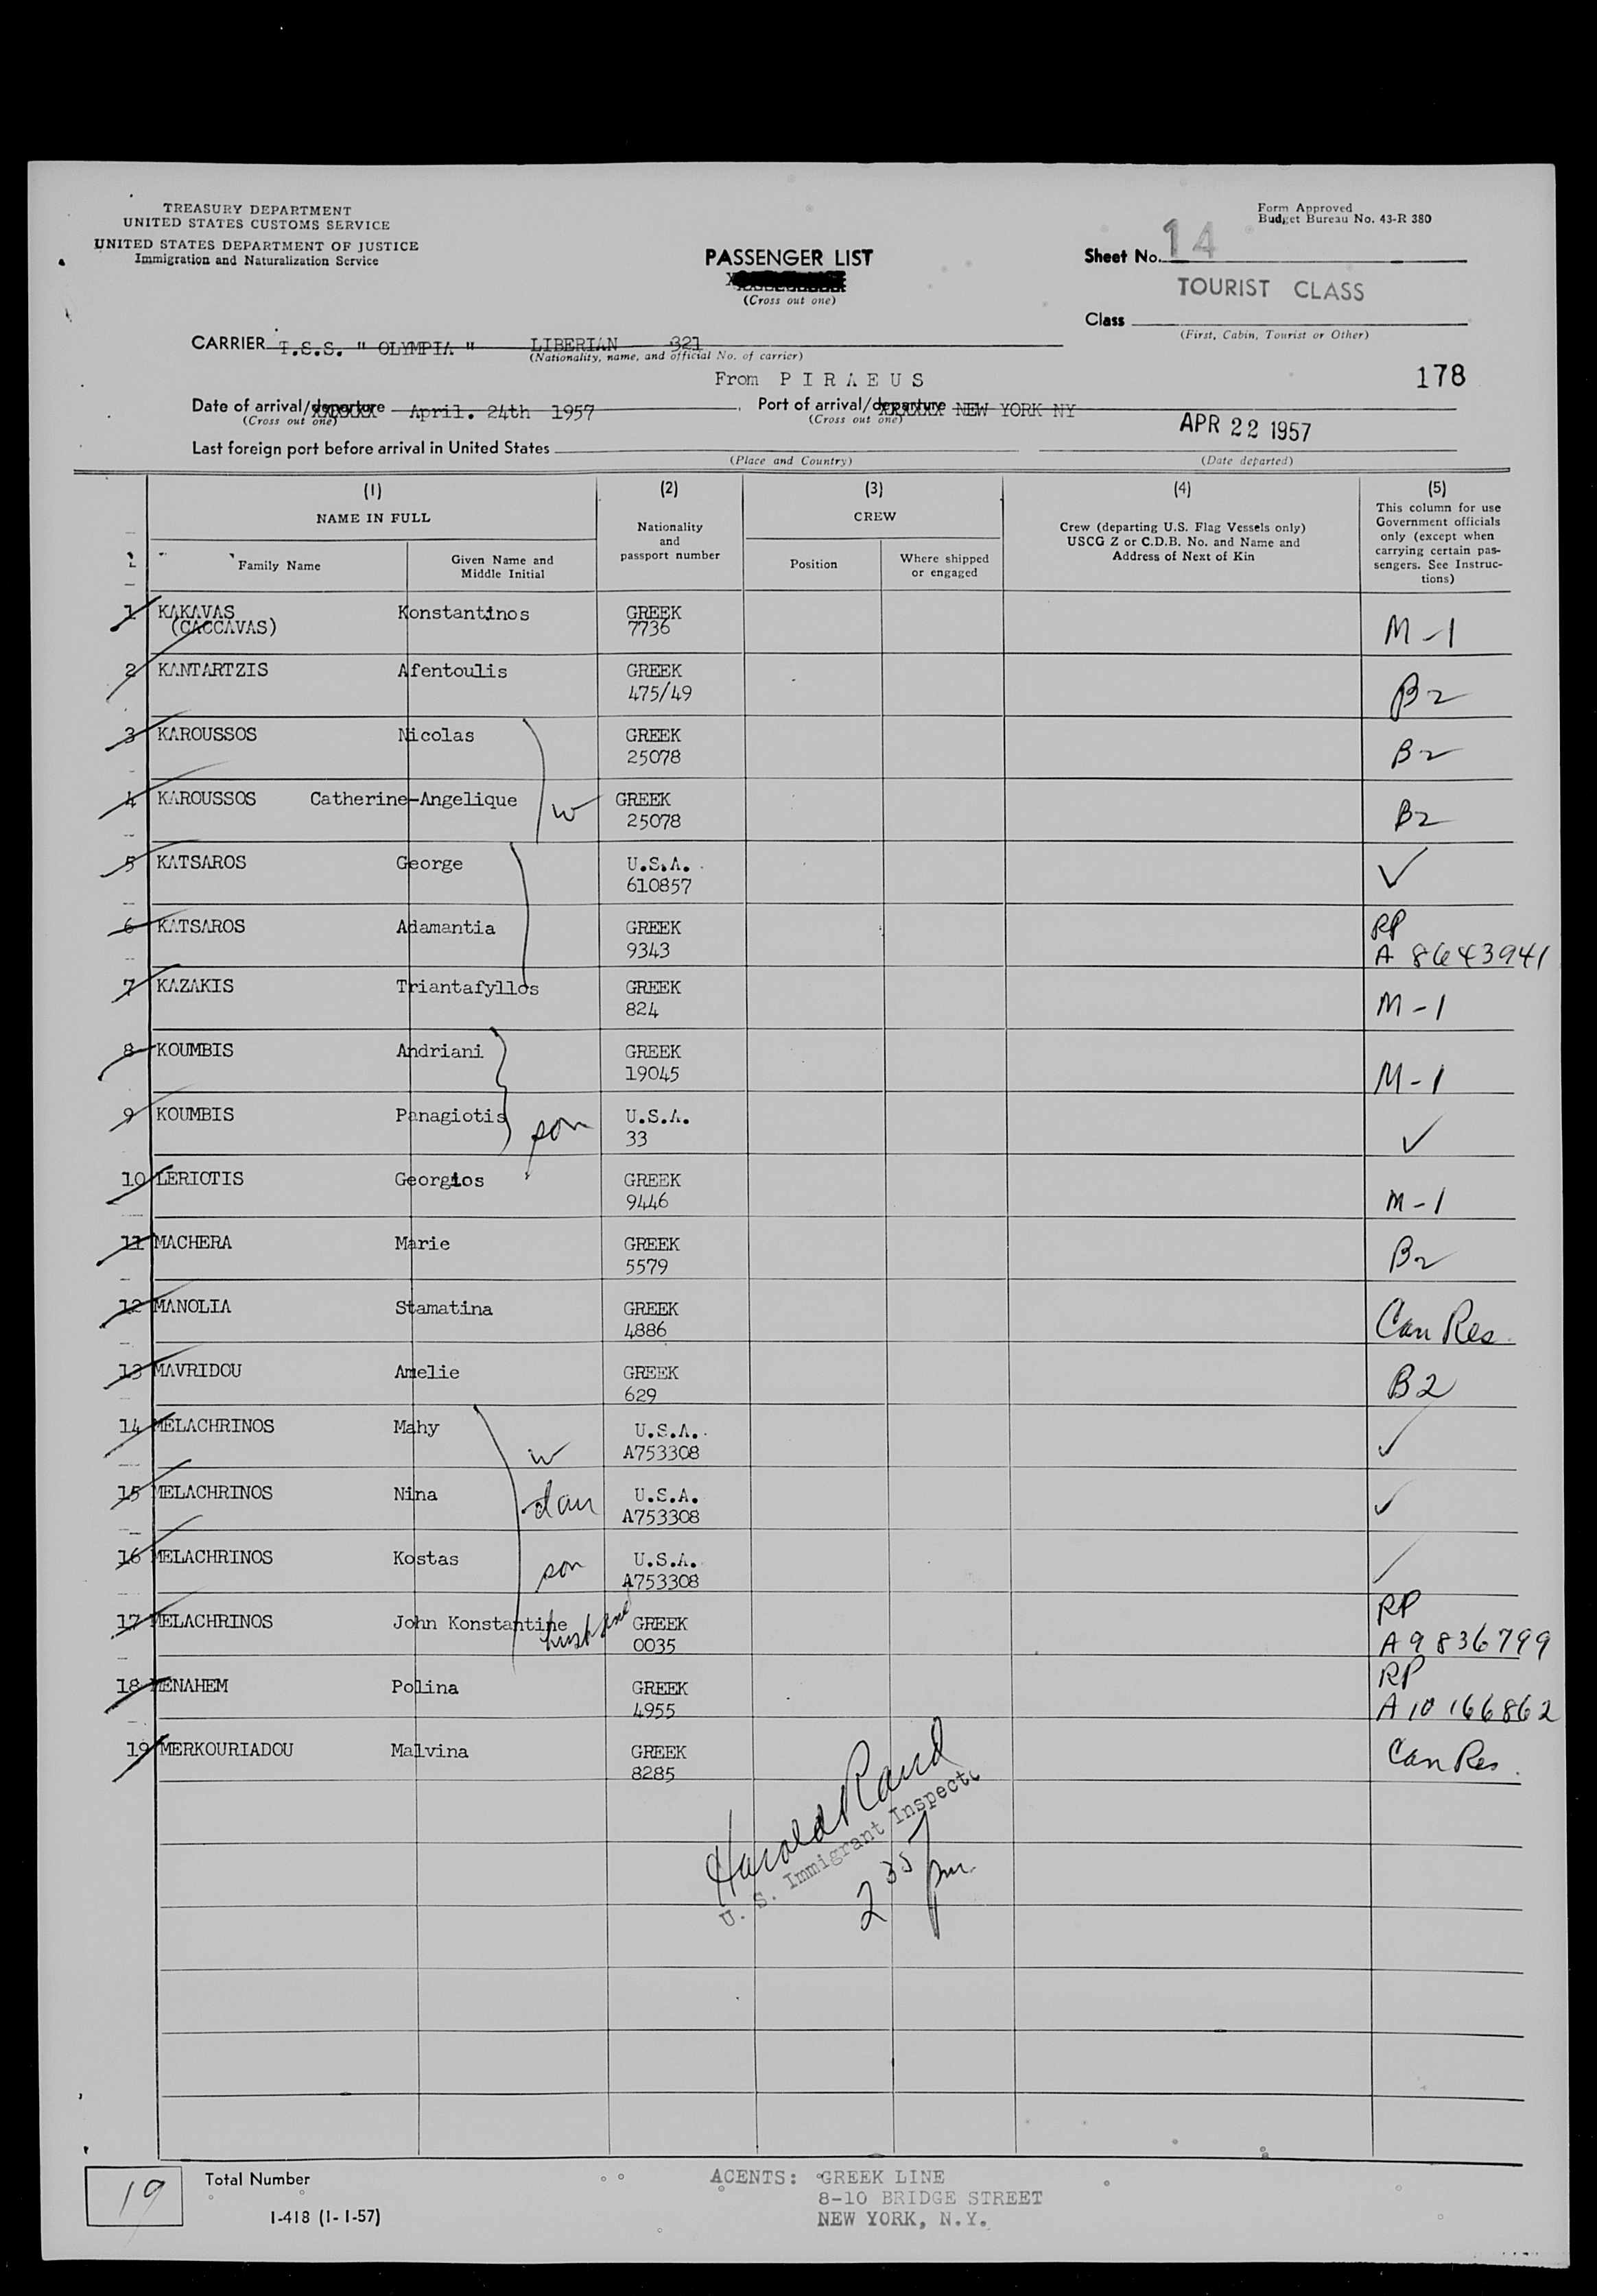 TREASURY DEPARTMENT
UNITED STATES CUSTOMS SERVICE
UNITED STATES DEPARTMENT OF JUSTICE
Immigration and Naturalization Service
Form Approved
Budget Bureau No. 43-R 380
PASSENGER LIST
(Cross out one)
Sheet No. 14
TOURIST CLASS
Class
(First, Cabin, Tourist or Other)
CARRIER T.S.S. " OLYMPIA " LIBERIAN 321
(Nationality, name, and official No. of carrier)
From PIRAEUS
178
Date of arrival/departure April. 24th 1957 Port of arrival/departure NEW YORK NY
(Cross out one) (Cross out one)
APR 22 1957
Last foreign port before arrival in United States
(Place and Country) (Date departed)
(1) (2) (3) (4) (5)
NAME IN FULL
Family Name
Given Name and Middle Initial
Nationality and passport number
CREW
Position
Where shipped or engaged
Crew (departing U.S. Flag Vessels only)
USCG Z or C.D.B. No. and Name and
Address of Next of Kin
This column for use
Government officials
only (except when
carrying certain pas-
sengers. See Instruc-
tions)
1 KAKAVAS Konstantinos GREEK
(CACCAVAS) 7736 M-1
2 KANTARTZIS Afentoulis GREEK
475/49 B2
3 KAROUSSOS Nicolas GREEK
25078 B2
4 KAROUSSOS Catherine-Angelique w GREEK
25078 B2
5 KATSAROS George U.S.A.
610857 ✓
6 KATSAROS Adamantia GREEK RP
9343 A 8643941
7 KAZAKIS Triantafyllos GREEK
824 M-1
8 KOUMBIS Andriani GREEK
19045 M-1
9 KOUMBIS Panagiotis son U.S.A.
33 ✓
10 LERIOTIS Georgios GREEK
9446 M-1
11 MACHERA Marie GREEK
5579 B2
12 MANOLIA Stamatina GREEK
4886 Can Res.
13 MAVRIDOU Amelie GREEK
629 B2
14 MELACHRINOS Mahy w U.S.A.
A753308 ✓
15 MELACHRINOS Nina dau U.S.A.
A753308 ✓
16 MELACHRINOS Kostas son U.S.A.
A753308
17 MELACHRINOS John Konstantine husband GREEK RP
0035 A9836799
18 MENAHEM Polina GREEK RP
4955 A10 166862
19 MERKOURIADOU Malvina GREEK
8285 Can Res.
Harold Rand
U. S. Immigrant Inspect
2 35 pm.
19 Total Number
I-418 (1-1-57)
AGENTS: GREEK LINE
8-10 BRIDGE STREET
NEW YORK, N.Y.